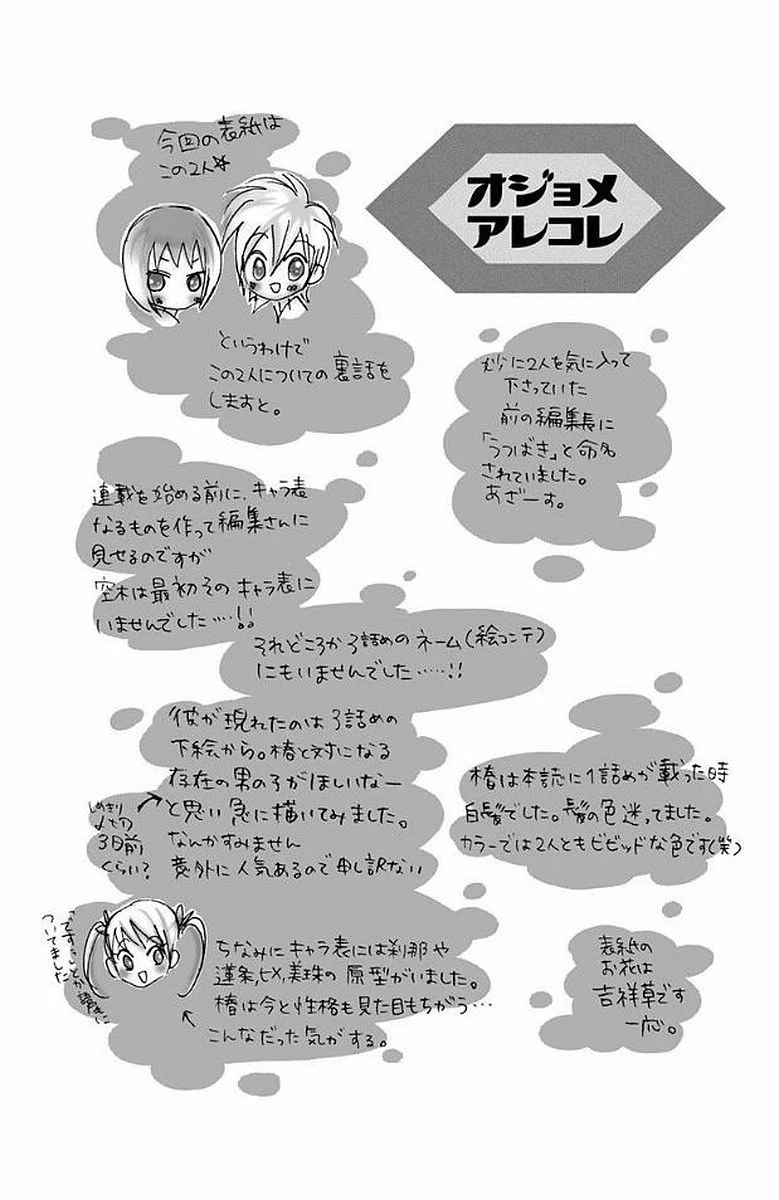 オジョメ
アレコレ
今回の表紙は
この2人☆
というわけで
この2人についての裏話を
しますと。
妙に2人を気に入って
下さっていた
前の編集長に
「うつばき」と命名
されていました。
あざーす。
連載を始める前に、キャラ表
なるものを作って編集さんに
見せるのですが
空木は最初そのキャラ表に
いませんでした…!!
それどころか3話めのネーム(絵コンテ)
にもいませんでした……!!
彼が現れたのは3話めの
下絵から。椿と対になる
存在の男の子がほしいなー
と思い急に描いてみました。
なんかすみません
意外に人気あるので申し訳ない
しめきり
〆切
3日前
くらい?
椿は本誌に1話めが載った時
白髪でした。髪の色迷ってました。
カラーでは2人ともビビッドな色です(笑)
ちなみにキャラ表には刹那や
蓮条,ヒメ,美珠の原型がいました。
椿は今と性格も見た目もちがう…
こんなだった気がする。
「〜です…」とか語尾に
ついてました
表紙の
お花は
吉祥草です
一応。